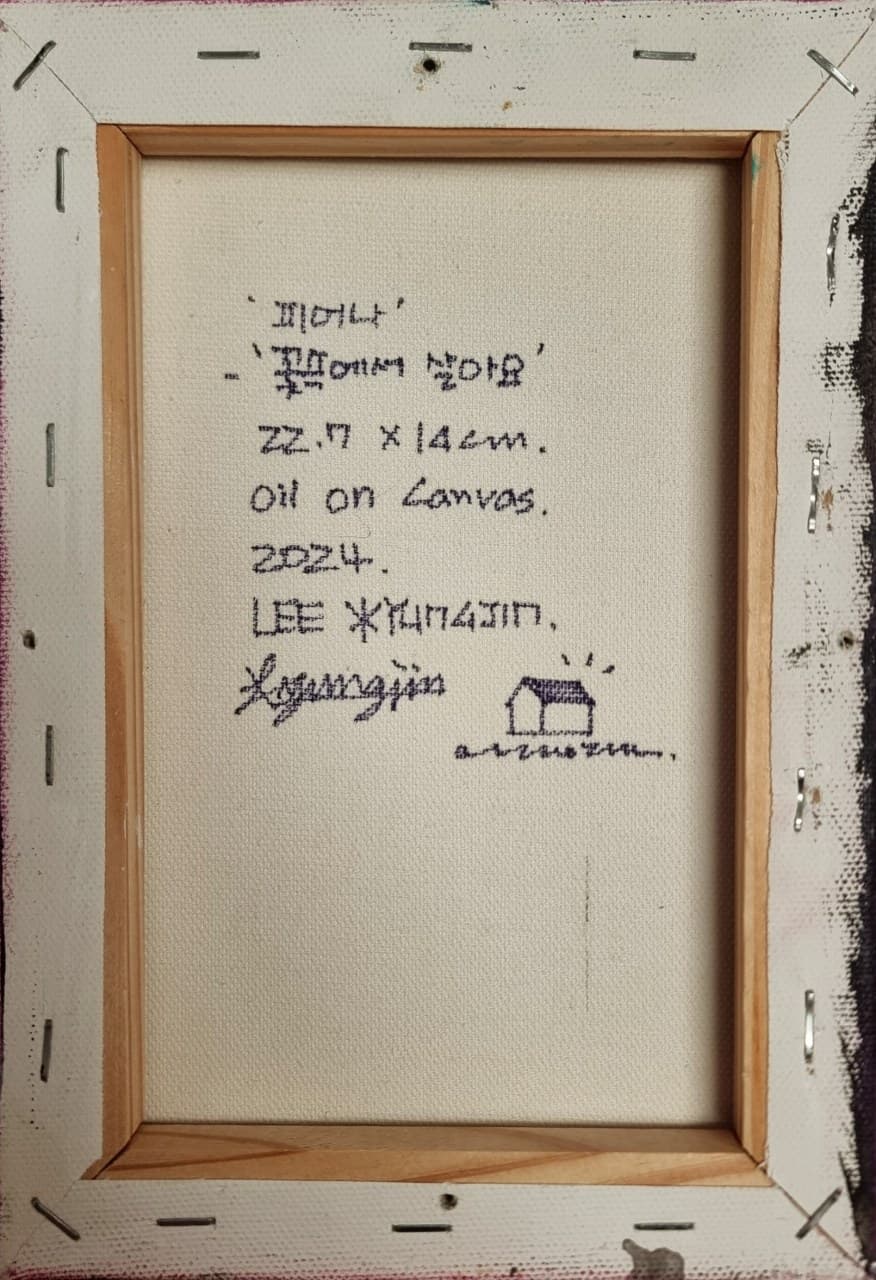 '피어나'
- '꽃밭에서 살아요'
22.7 x 14cm.
Oil on Canvas.
2024.
LEE KYUNGJIN.
Kyungjin